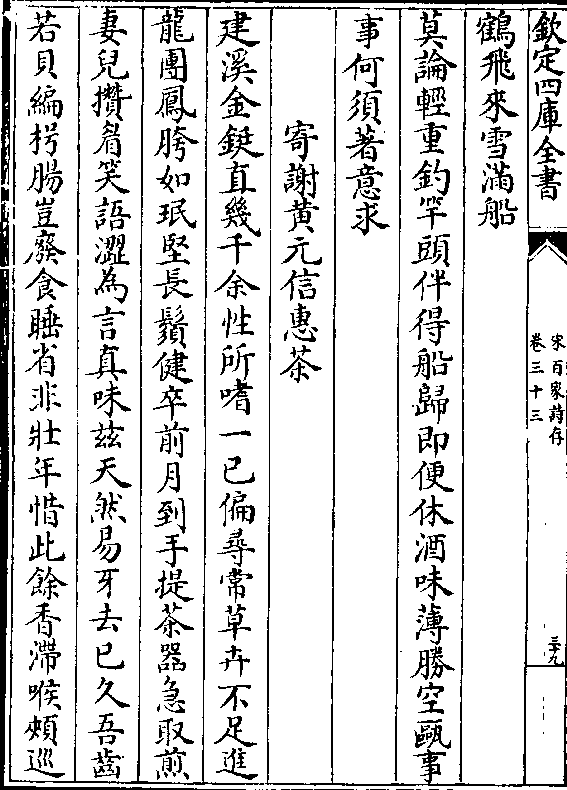 欽定四庫全書
宋百家詩存
卷三十三
三十九
鶴飛來雪滿船
莫論輕重釣竿頭伴得船歸即便休酒味薄勝空甌事
事何須著意求
寄謝黄元信惠茶
建溪金鋌直幾千余性所嗜一已偏尋常草卉不足進
龍團鳳胯如珉堅長鬚健卒前月到手提茶器急取煎
妻兒攢眉笑語澀為言真味兹天然易牙去已久吾齒
若貝編枵腸豈廢食睡省非壯年惜此餘香滯喉頰巡